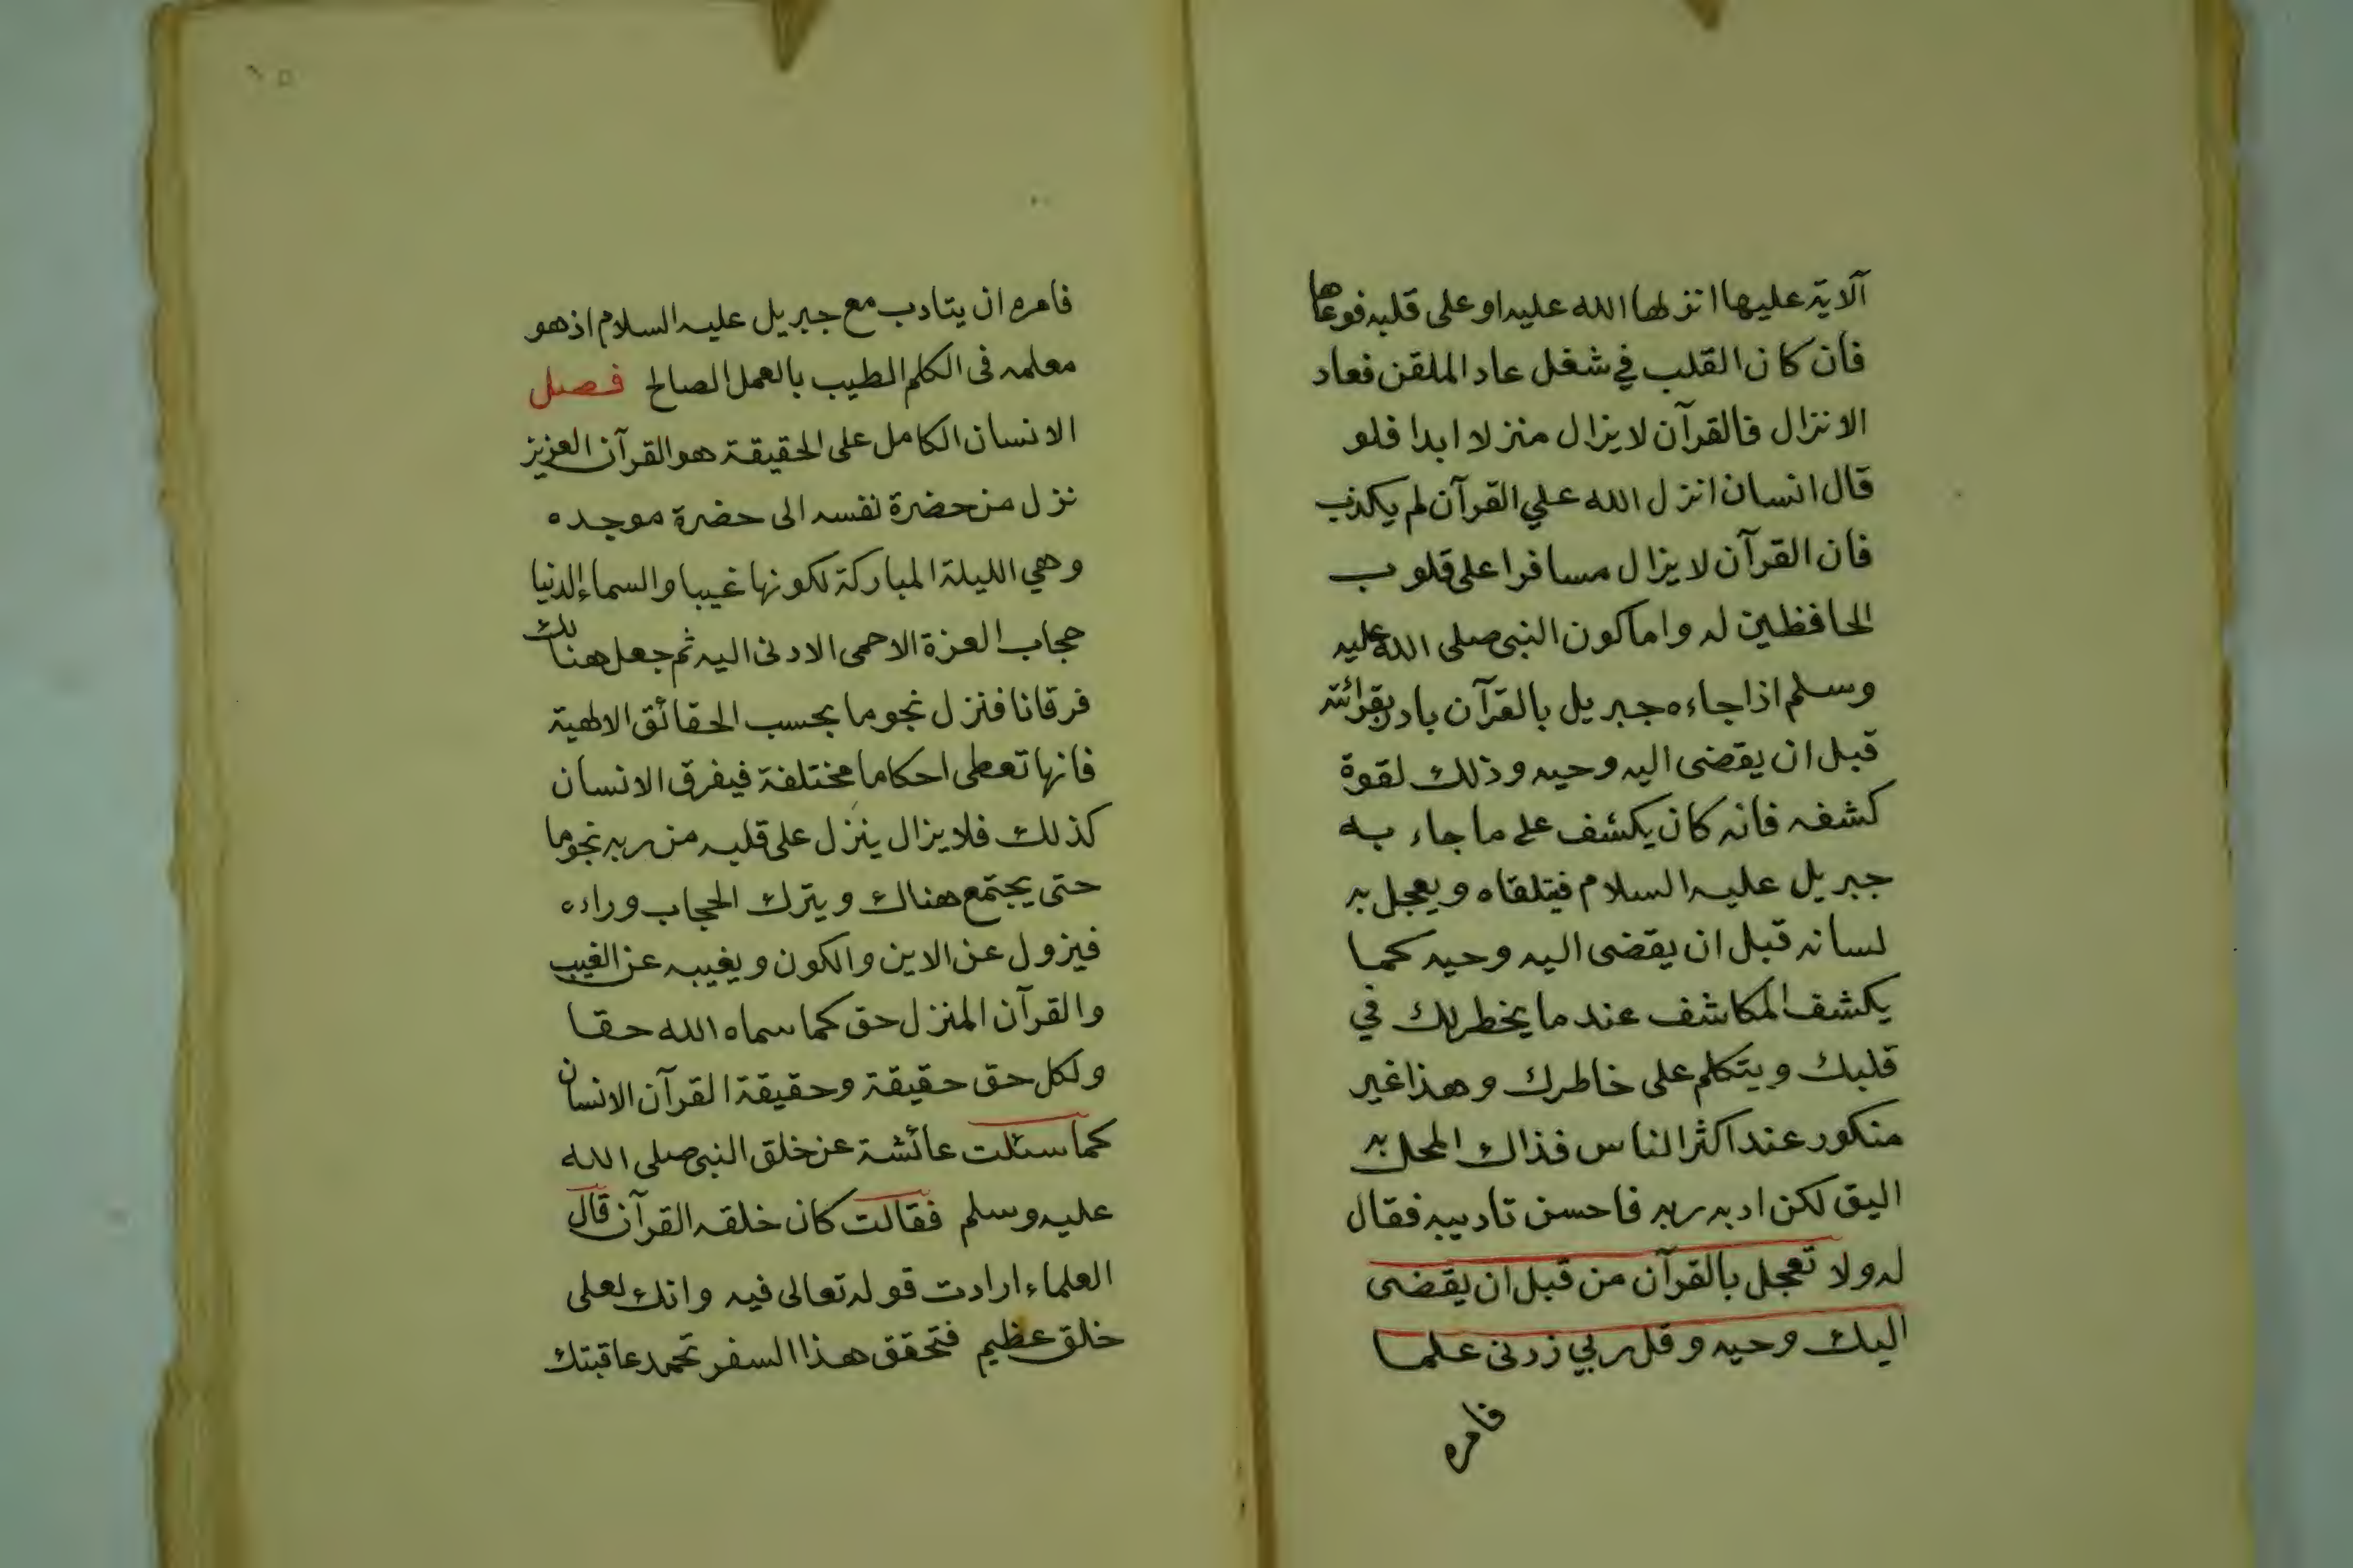 آلاية عليها انزلها الله عليه او على قلبه فوعاها
فان كان القلب في شغل عاد الملقن فعاد
الانزال فالقرآن لا يزال منزلا ابدا فلو
قال انسان انزل الله علي القرآن لم يكذب
فان القرآن لا يزال مسافرا على قلوب
الحافظين له واما كون النبي صلى الله عليه
وسلم اذا جاءه جبريل بالقرآن بادر بقرائته
قبل ان يقضى اليه وحيه وذلك لقوة
كشفه فانه كان يكشف على ما جاء به
جبريل عليه السلام فيتلقاه ويعجل به
لسانه قبل ان يقضى اليه وحيه كما
يكشف المكاشف عند ما يخطر لك في
قلبك ويتكلم على خاطرك وهذا غير
منكور عند اكثر الناس فذاك المحل به
اليق لكن ادبه ربه فاحسن تاديبه فقال
له ولا تعجل بالقرآن من قبل ان يقضى
اليك وحيه وقل ربي زدنى علما
فامره
١٥
فامره ان يتادب مع جبريل عليه السلام اذ هو
معلمه فى الكلم الطيب بالعمل الصالح فصل
الانسان الكامل على الحقيقة هو القرآن العزيز
نزل من حضرة نفسه الى حضرة موجده
وهي الليلة المباركة لكونها غيبا والسماء الدنيا
حجاب العزة الاحمى الادنى اليه ثم جعل هنالك
فرقانا فنزل نجوما بحسب الحقائق الالهية
فانها تعطى احكاما مختلفة فيفرق الانسان
كذلك فلا يزال ينزل على قلبه من ربه نجوما
حتى يجتمع هناك ويترك الحجاب وراءه
فيزول عن الاين والكون ويغيبه عن الغيب
والقرآن المنزل حق كما سماه الله حقا
ولكل حق حقيقة وحقيقة القرآن الانسان
كما سئلت عائشة عن خلق النبى صلى الله
عليه وسلم فقالت كان خلقه القرآن قال
العلماء ارادت قوله تعالى فيه وانك لعلى
خلق عظيم فتحقق هذا السفر تحمد عاقبتك